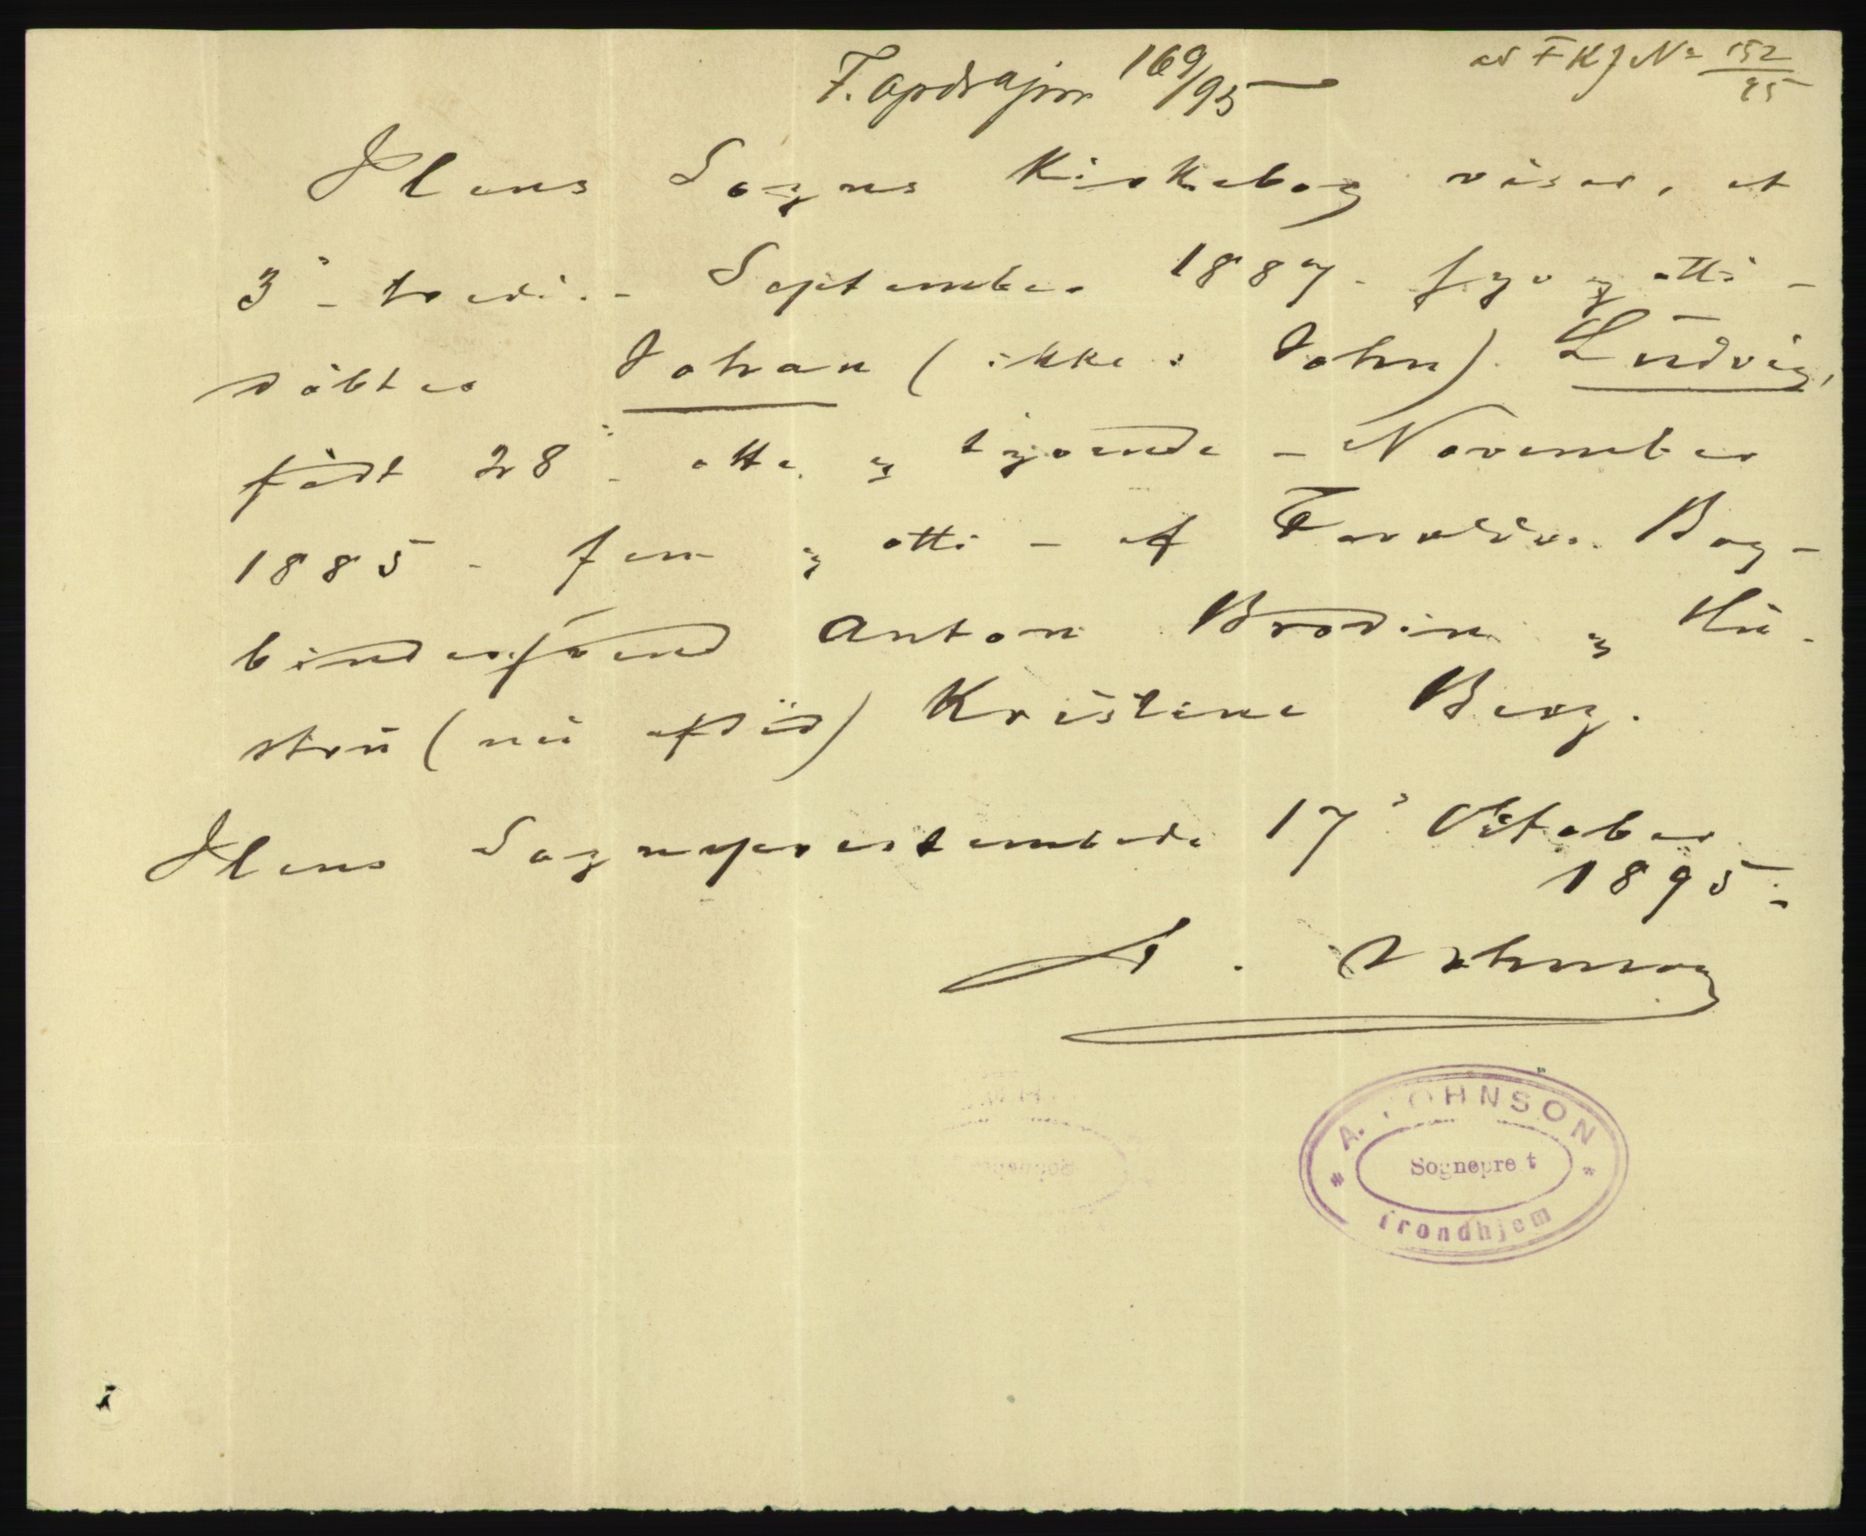 ad F K J No 152/95
F. Opdragm 169/95
Ilens Sogns Kirkebog viser, at
3' - tredie - September 1887 - syv og otti -
döbtes Johan (ikke: John) Ludvig,
födt 28' - otte og tyvende - November
1885 - fem og otti - af Forældre: Bog-
bindersvend Anton Brodin og Hu-
stru (nu afdöd) Kristine Berg.
Ilens Sogneprestembede 17' Oktober
1895.
A. Johnson
A. JOHNSON
Sognepre t
Trondhjem